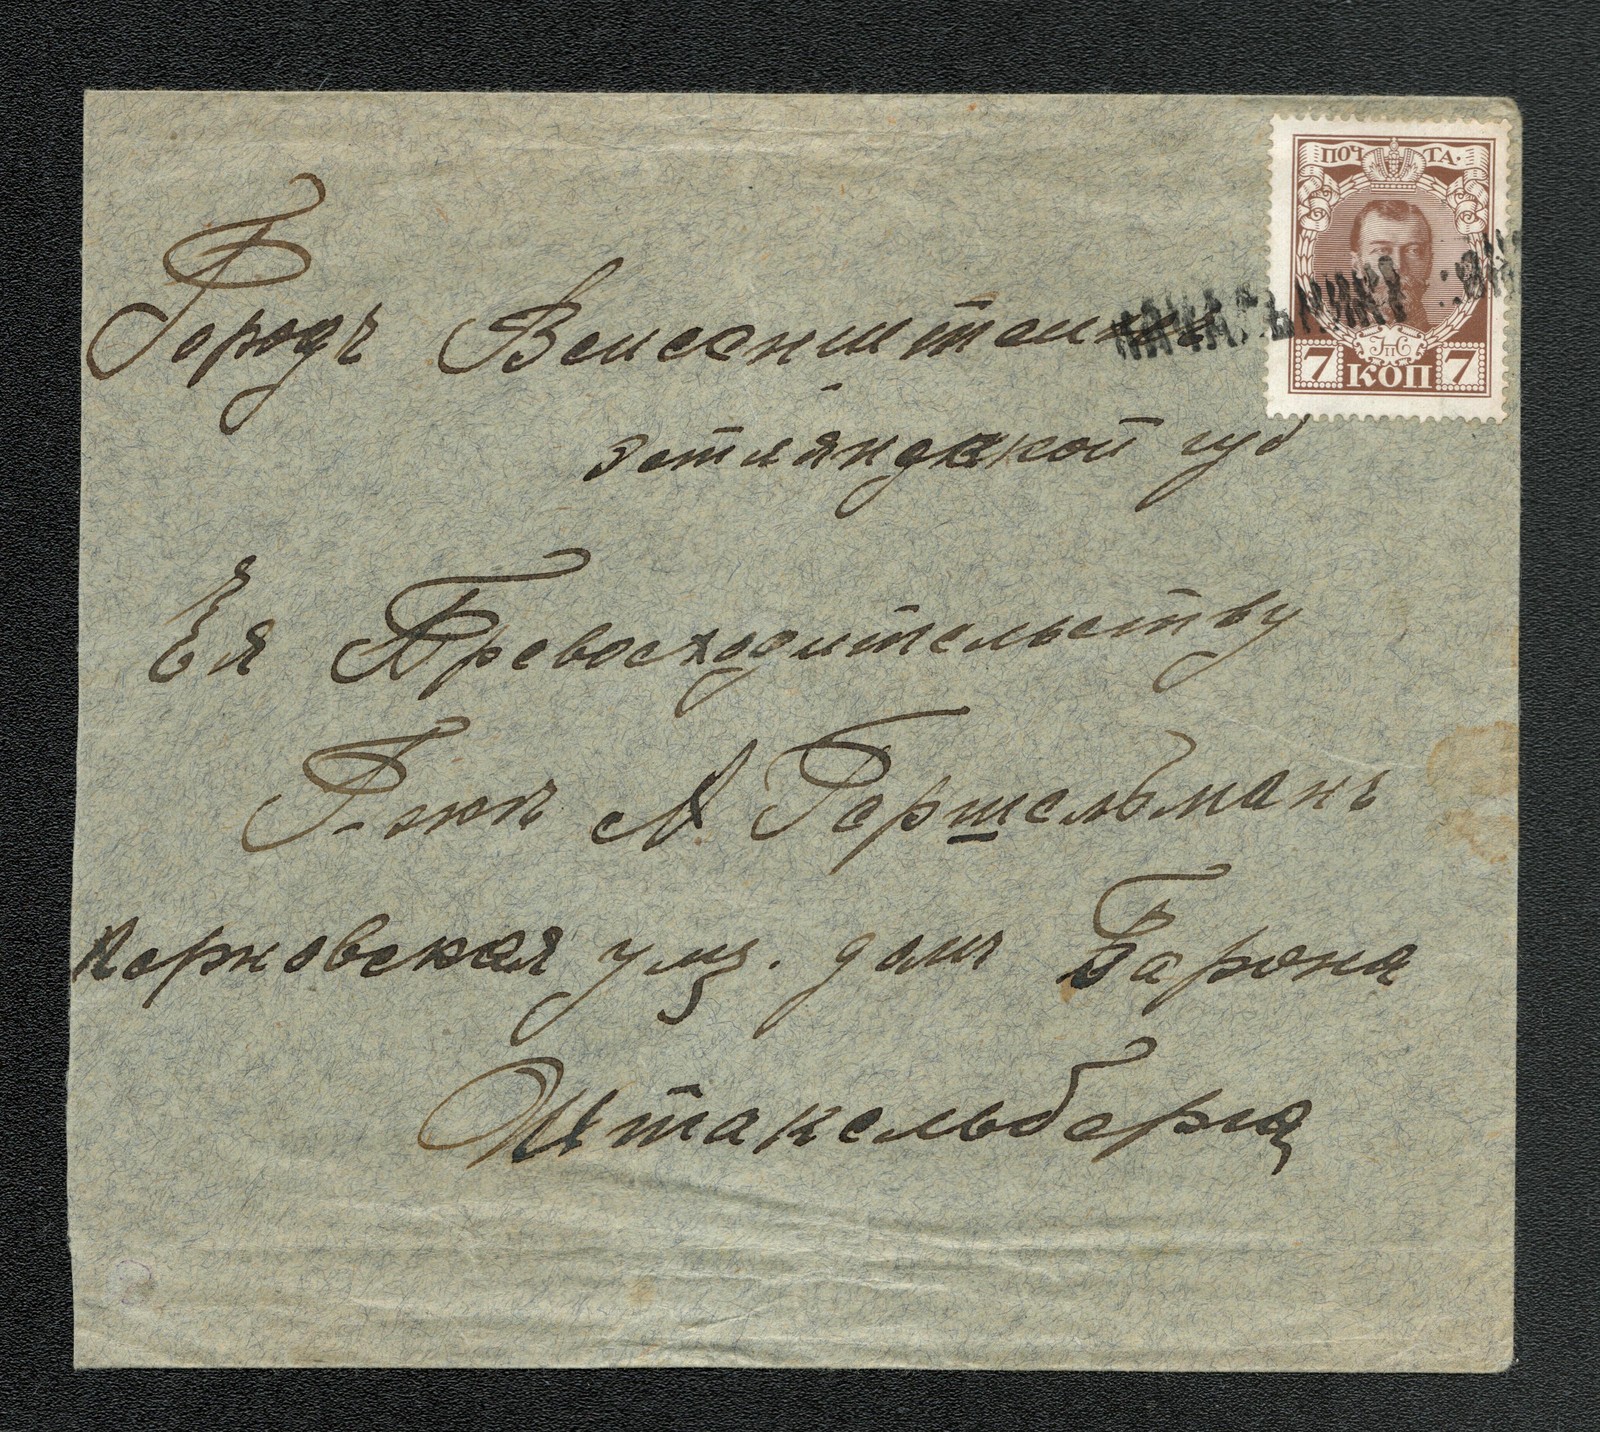 ПОЧТА.
7 КОП 7
НАЧАЛЬНИКЪ
Городъ Веисенштеинъ
Эстляндской губ
Ея Превосходительству
Г-жѣ А Гершельманъ
Перновская улиц. домъ Барона
Штакельберга